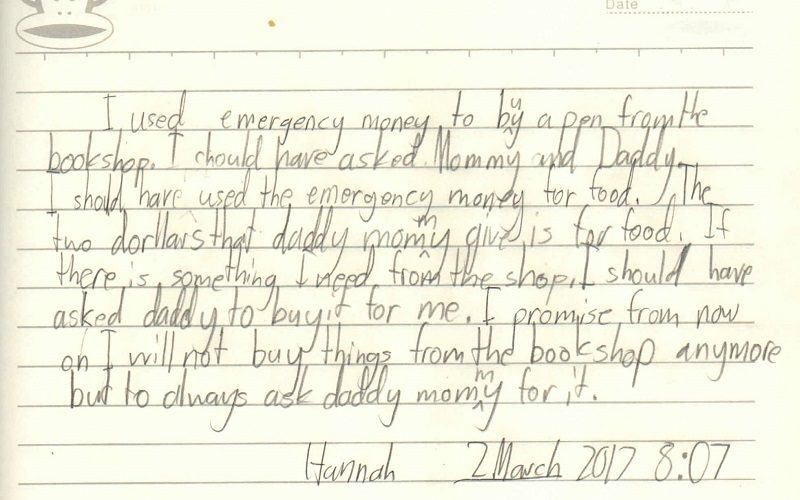 Date
I used emergency money to buy a pen from the
bookshop. I should have asked Mommy and Daddy.
I should have used the emergency money for food. The
two dorllars that daddy mommy give is for food. If
there is something I need from the shop, I should have
asked daddy to buy it for me. I promise from now
on I will not buy things from the bookshop anymore
but to always ask daddy mommy for it.
Hannah 2 March 2017 8:07